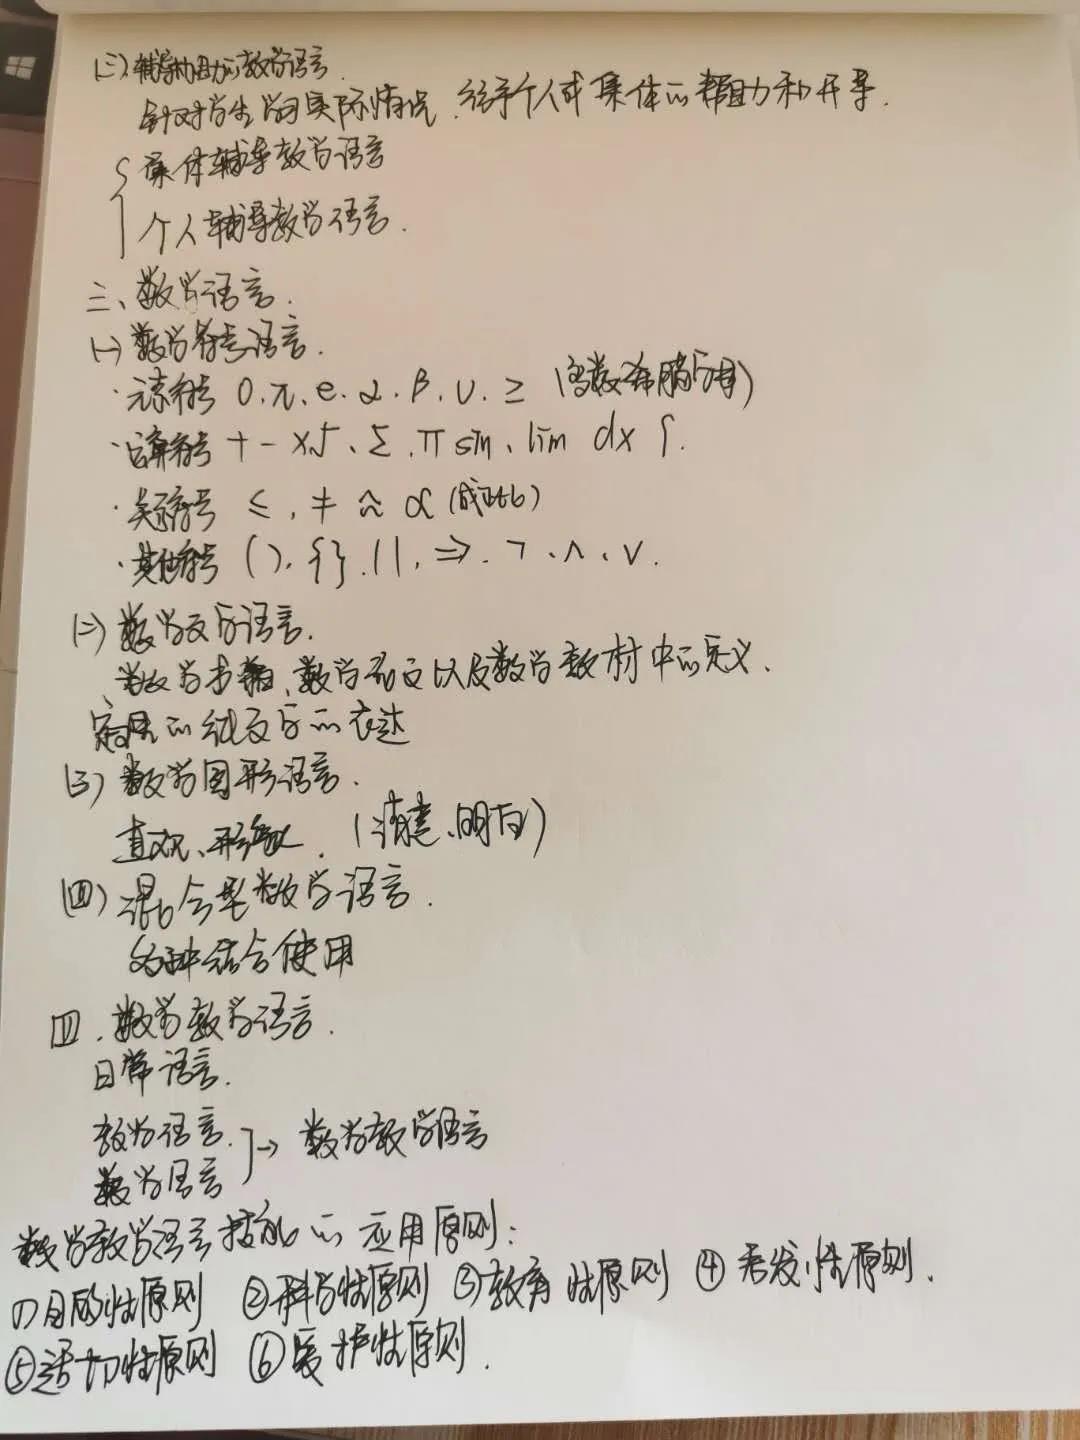 (三)辅导协助的教学语言.
针对学生学习实际情况.给予个人或集体的帮助和开导.
集体辅导教学语言
个人辅导教学语言.
三、数学语言.
(一)数学符号语言.
·元素符号 0.π.e.α.β.∪.≥ (字母)
·运算符号 + - ×√.Σ.π sin、lim dx ∫.
·关系符号 ≤,≠ ≈ ∝(成正比)
·其他符号 ( ). { }. | |. ⇒. ¬.∧.∨.
(二)数学文字语言.
数学书籍、数学论文以及数学教材中的定义.
定理的纯文字的表达
(三)数学图形语言.
直观、形象. (清楚、明白)
(四)混合型数学语言.
多种结合使用
四.数学教学语言.
日常语言.
教学语言.
数学语言 → 数学教学语言
数学教学语言技能的应用原则:
①目的性原则 ②科学性原则 ③教育性原则 ④启发性原则.
⑤适切性原则 ⑥爱护性原则.